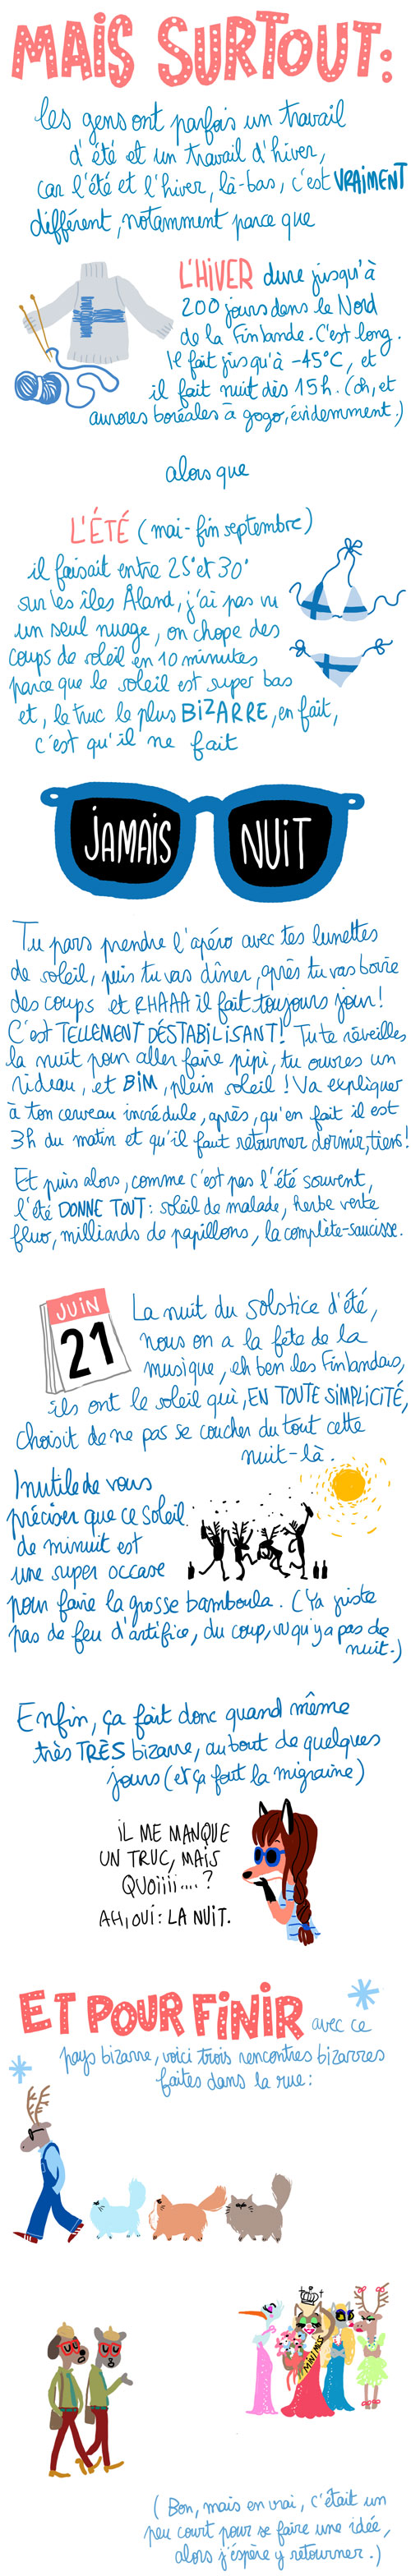 MAIS SURTOUT:
les gens ont parfois un travail
d'été et un travail d'hiver,
car l'été et l'hiver, là-bas, c'est VRAIMENT
différent, notamment parce que
L'HIVER dure jusqu'à
200 jours dans le Nord
de la Finlande. C'est long.
Il fait jusqu'à -45°C, et
il fait nuit dès 15h. (oh, et
aurores boréales à gogo, évidemment.)
alors que
L'ÉTÉ (mai-fin septembre)
il faisait entre 25° et 30°
sur les îles Åland, j'ai pas vu
un seul nuage, on chope des
coups de soleil en 10 minutes
parce que le soleil est super bas
et, le truc le plus BIZARRE, en fait,
c'est qu'il ne fait
JAMAIS NUIT
Tu pars prendre l'apéro avec tes lunettes
de soleil, puis tu vas dîner, après tu vas boire
des coups et RHAAA il fait toujours jour!
C'est TELLEMENT DÉSTABILISANT! Tu te réveilles
la nuit pour aller faire pipi, tu ouvres un
rideau, et BIM, plein soleil! Va expliquer
à ton cerveau incrédule, après, qu'en fait il est
3h du matin et qu'il faut retourner dormir, tiens!
Et puis alors, comme c'est pas l'été souvent,
l'été DONNE TOUT: soleil de malade, herbe verte
fluo, milliards de papillons, la complète-saucisse.
JUIN
21
La nuit du solstice d'été,
nous on a la fête de la
musique, eh ben les Finlandais,
ils ont le soleil qui, EN TOUTE SIMPLICITÉ,
choisit de ne pas se coucher du tout cette
nuit-là.
Inutile de vous
préciser que ce soleil
de minuit est
une super occase
pour faire la grosse bamboula. (Ya juste
pas de feu d'artifice, du coup, vu qu'y a pas de
nuit.)
Enfin, ça fait donc quand même
très TRÈS bizarre, au bout de quelques
jours (et ça fout la migraine)
IL ME MANQUE
UN TRUC, MAIS
QUOIiii....?
AH, OUI: LA NUIT.
ET POUR FINIR avec ce
pays bizarre, voici trois rencontres bizarres
faites dans la rue:
MINI MISS
(Bon, mais en vrai, c'était un
peu court pour se faire une idée,
alors j'espère y retourner.)